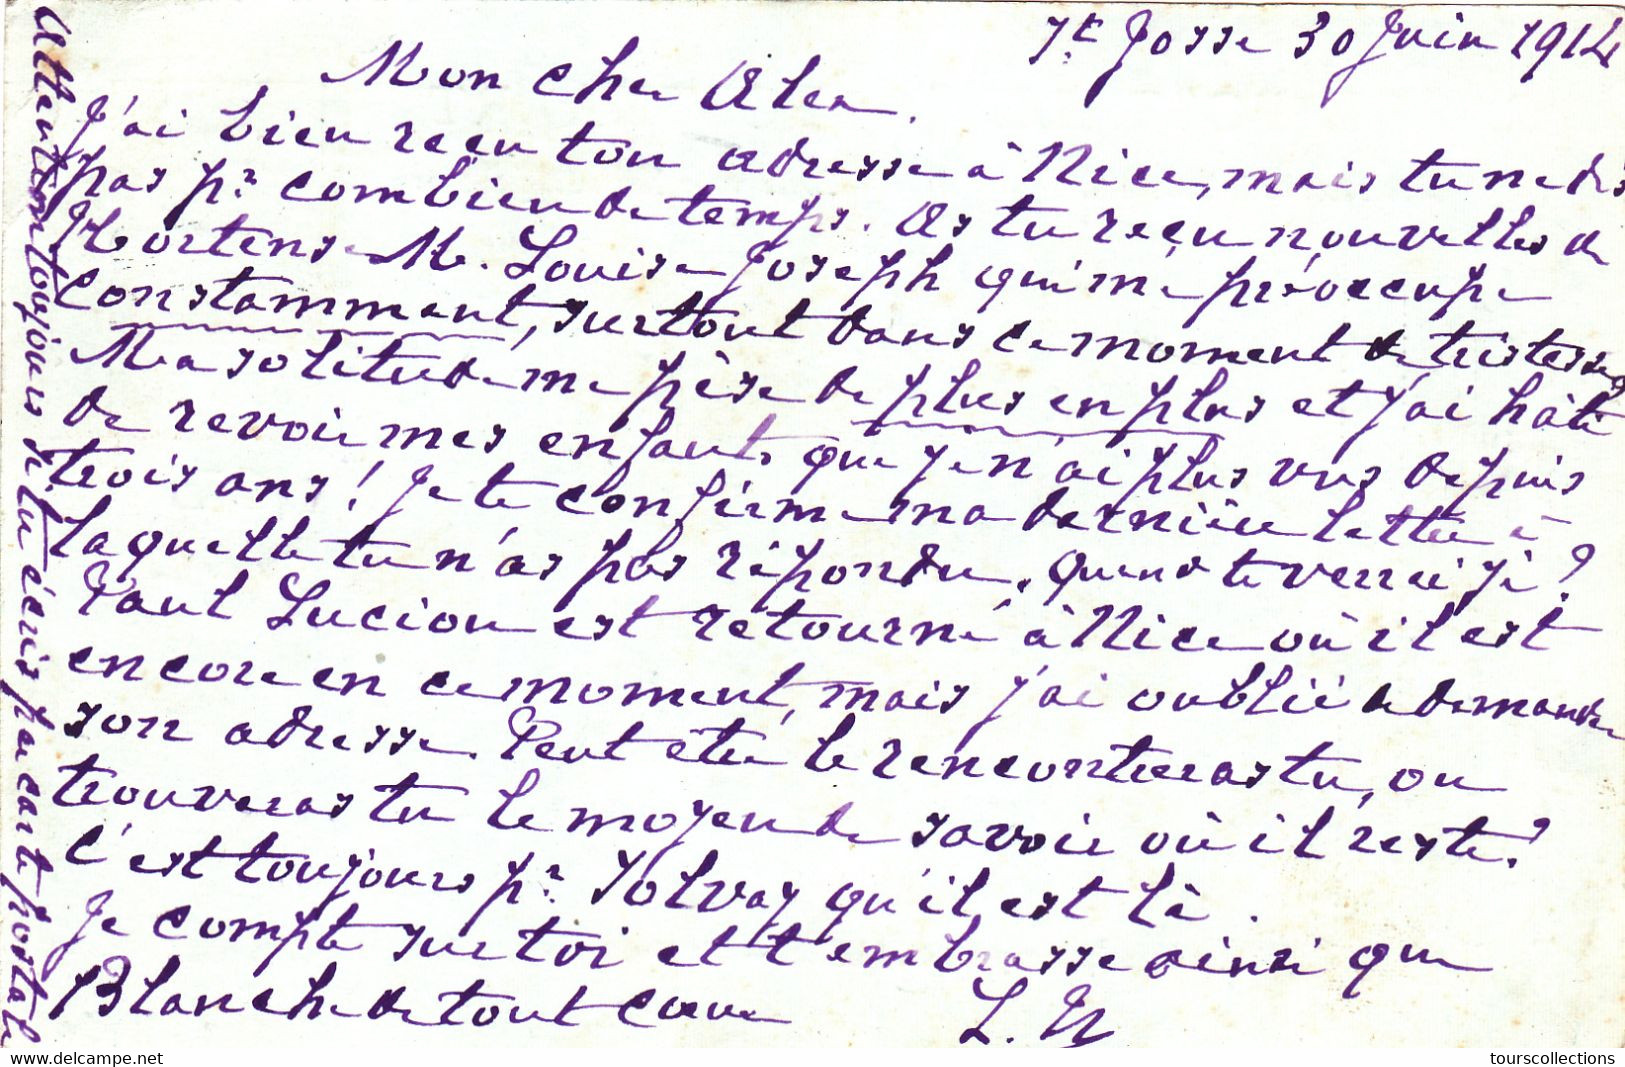 St Josse 30 Juin 1914
Mon cher Alex.
J'ai bien reçu ton adresse à Nice, mais tu ne dis
pas pr combien de temps. As tu reçu nouvelles de
Hortense M. Louise Joseph qui me préoccupe
constamment, surtout dans ce moment de tristesse
Ma solitude me pèse de plus en plus et j'ai hâte
de revoir mes enfants que je n'ai plus vus depuis
trois ans! Je te confirme ma dernière lettre à
laquelle tu n'as pas répondu. Quand te verrai je?
Paul Lucion est retourné à Nice où il est
encore en ce moment, mais j'ai oublié de demander
son adresse. Peut être le rencontreras tu, ou
trouveras tu le moyen de savoir où il reste?
C'est toujours pr Solvay qu'il est là.
Je compte sur toi et t'embrasse ainsi que
Blanche de tout cœur
L. H
Attention toujours si tu écris par carte postale
www.delcampe.net
tourscollections